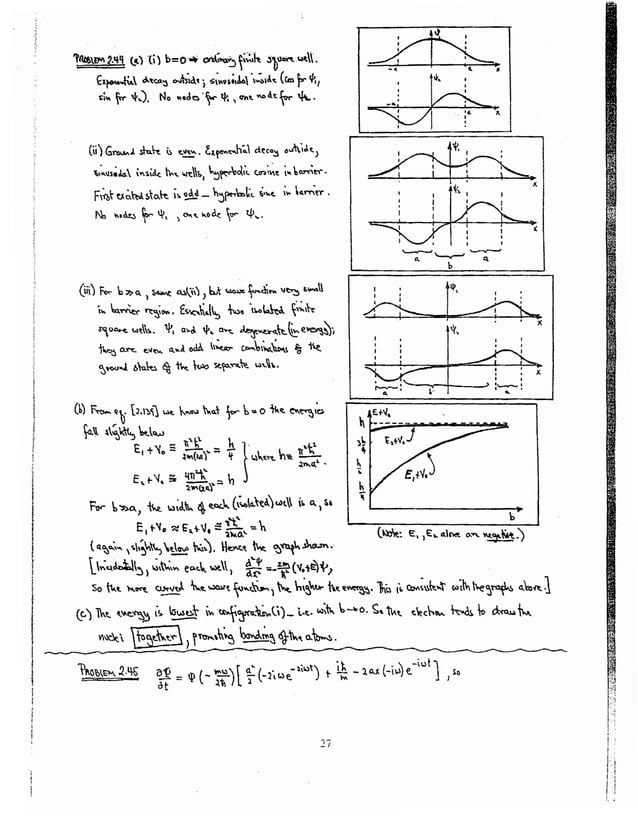 PROBLEM 2.44 (a) (i) b=0 ⇒ ordinary finite square well.
Exponential decay outside; sinusoidal inside (cos for ψ₁,
sin for ψ₂). No nodes for ψ₁, one node for ψ₂.
ψ₁
-a
a
x
ψ₂
-a
a
x
(ii) Ground state is even. Exponential decay outside,
sinusoidal inside the wells, hyperbolic cosine in barrier.
First excited state is odd — hyperbolic sine in barrier.
No nodes for ψ₁, one node for ψ₂.
ψ₁
x
ψ₂
x
a
b
a
(iii) For b≫a, same as (ii), but wave function very small
in barrier region. Essentially two isolated finite
square wells. ψ₁ and ψ₂ are degenerate (in energy);
they are even and odd linear combinations of the
ground states of the two separate wells.
ψ₁
x
ψ₂
x
a
b
a
(b) From eq. [2.135] we know that for b=0 the energies
fall slightly below
E₁ + V₀ ≅ π²ħ²/2m(2a)² = h/4
E₂ + V₀ ≅ 4π²ħ²/2m(2a)² = h
} where h ≡ π²ħ²/2ma².
For b≫a, the width of each (isolated) well is a, so
E₁ + V₀ ≈ E₂ + V₀ ≅ π²ħ²/2ma² = h
(again, slightly below this). Hence the graph shown.
[Incidentally, within each well, d²ψ/dx² = -2m/ħ² (V₀+E)ψ,
so the more curved the wave function, the higher the energy. This is consistent with the graphs above.]
E+V₀
h
3h/4
h/2
h/4
E₂+V₀
E₁+V₀
b
(Note: E₁, E₂ alone are negative.)
(c) The energy is lowest in configuration (i) — i.e. with b→0. So the electron tends to draw the
nuclei together, promoting bonding of the atoms.
PROBLEM 2.45 ∂Φ/∂t = Φ(-mω/2ħ)[a²/2 (-2iωe^(-2iωt)) + iħ/m - 2ax(-iω)e^(-iωt)], so
27